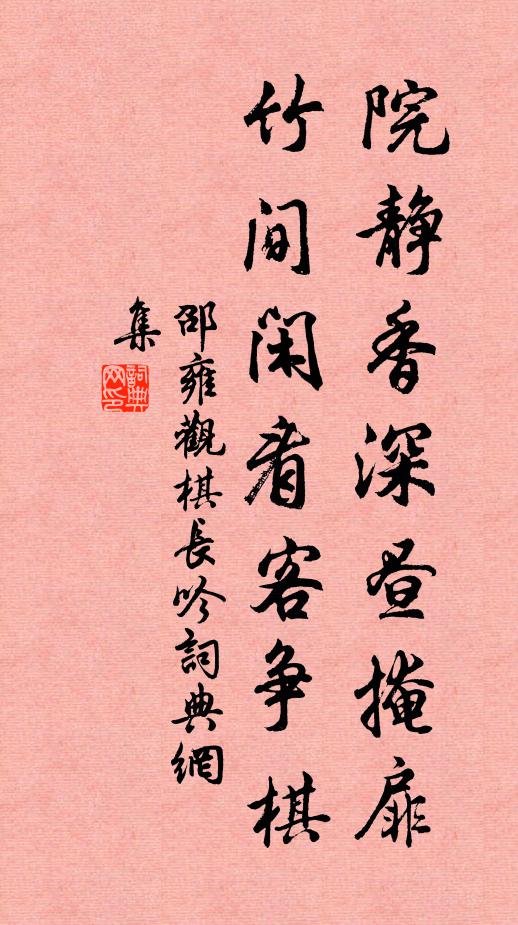 院静香深昼掩扉
竹间闲看客争棋
邵雍觀棋長吟詞典網
集
詞典
网印